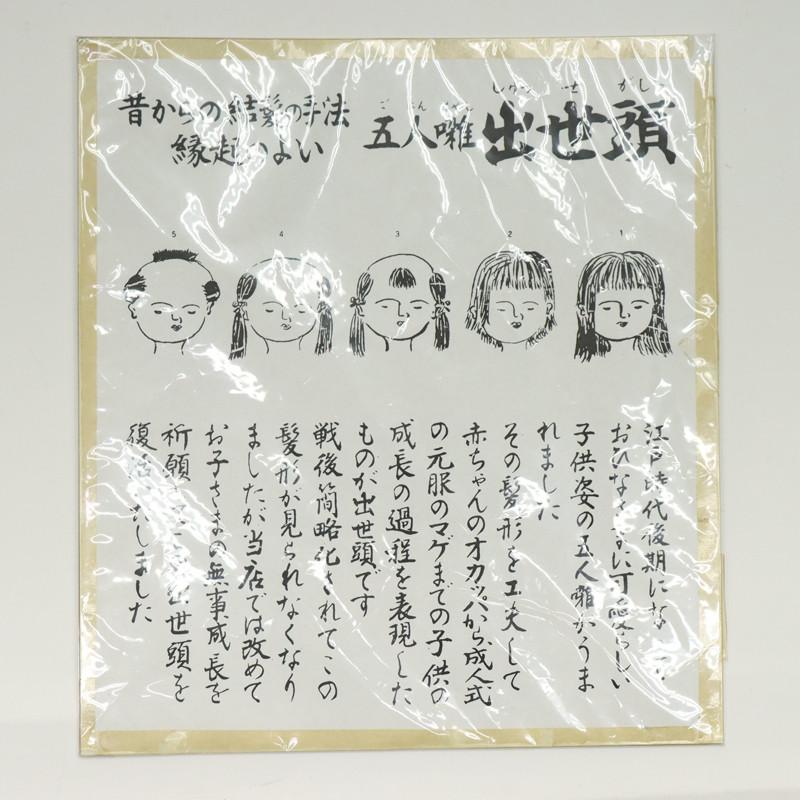 五人囃 出世頭
ご にん ばやし しゅっ せ がしら
昔からの結髪の手法
縁起のよい
1
2
3
4
5
江戸時代後期になって
おひなさまに可愛らしい
子供姿の五人囃がうま
れました
その髪形を工夫して
赤ちゃんのオカッパから成人式
の元服のマゲまでの子供の
成長の過程を表現した
ものが出世頭です
戦後簡略化されてこの
髪形が見られなくなり
ましたが当店では改めて
お子さまの無事成長を
祈願 出世頭を
復活いたしました